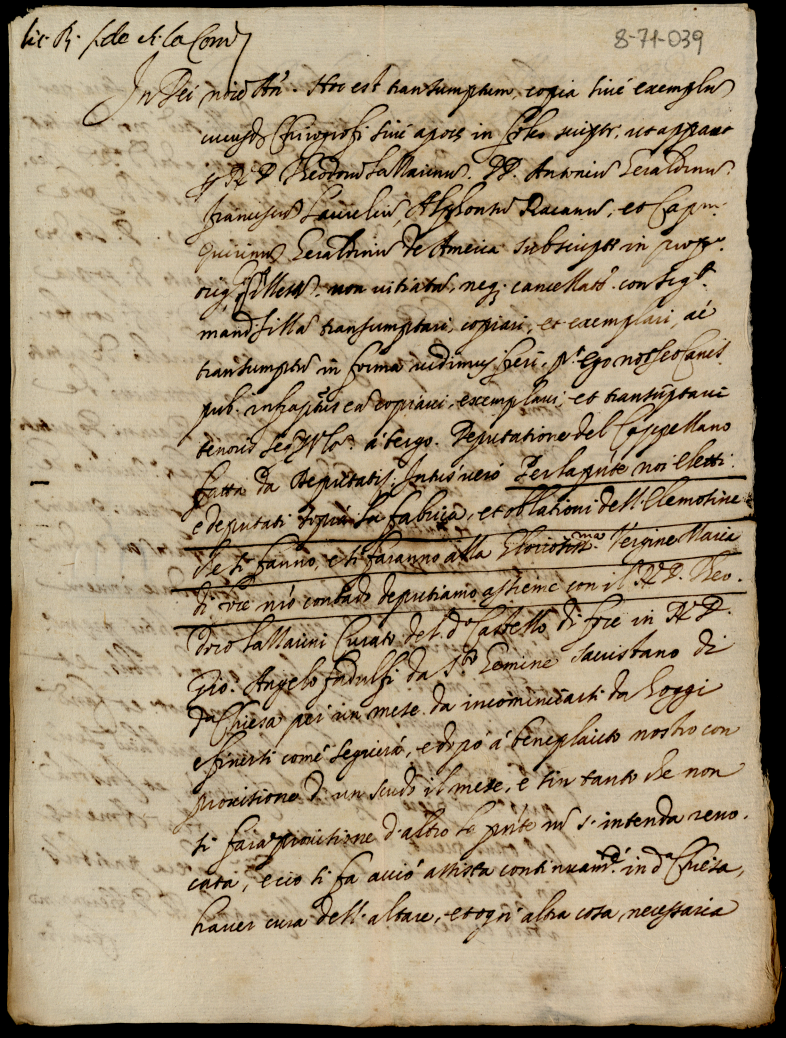 8-71-039
In Dei no͞ie Am̃. Hoc est transumptum, copia sive exemplu͂
cuiusd͂ Chirografi sive apocẽ in folio script. ut apparet
R. D. Theodoru͂ Sallaienu͂. DD. Antoniu͂ Geraldinu͂
franciscu͂ Laureliu͂, Alphonsu͂ Racanu͂, et Cap͞m
Quirinu͂ Geraldinu͂ de Ameria subscript in
orig. non vitiata, neq; cancellat. con sig.
mand. transumptari, copiari, et exemplari, ac
transumptu͂ in forma vidimus fieri. ego
pub. infra͞ptus ea͂ copiavi, exemplavi, et transu͂ptavi
tenoris seq. a tergo. Deputatione del Cappellano
fatta da Deputati. Intus vero Per la p͞nte noi eletti
e deputati sopra la fabrica, et oblationi dell'Elemosine
che si fanno, e si faranno alla Gloriosiss.ma Vergine Maria
di n͞ro contado deputiamo assieme con il R. D. Theo-
doro Sallaieni Curato del d.o Castello di foce in R. D.
Gio. Angelo fadulfi da S.to Gemine sacristano di
d.a Chiesa per un mese da incominciarsi da hoggi
e finirsi come seguirà, e dopò à beneplacito nostro con
provisione di un scudo il mese, e sin tanto che non
si farà provisione d'altro la p͞nte no͂ s'intenda revo-
cata, e ciò si fa acciò assista continuam.te in d.a Chiesa,
haver cura dell'altare, et ogni altra cosa necessaria